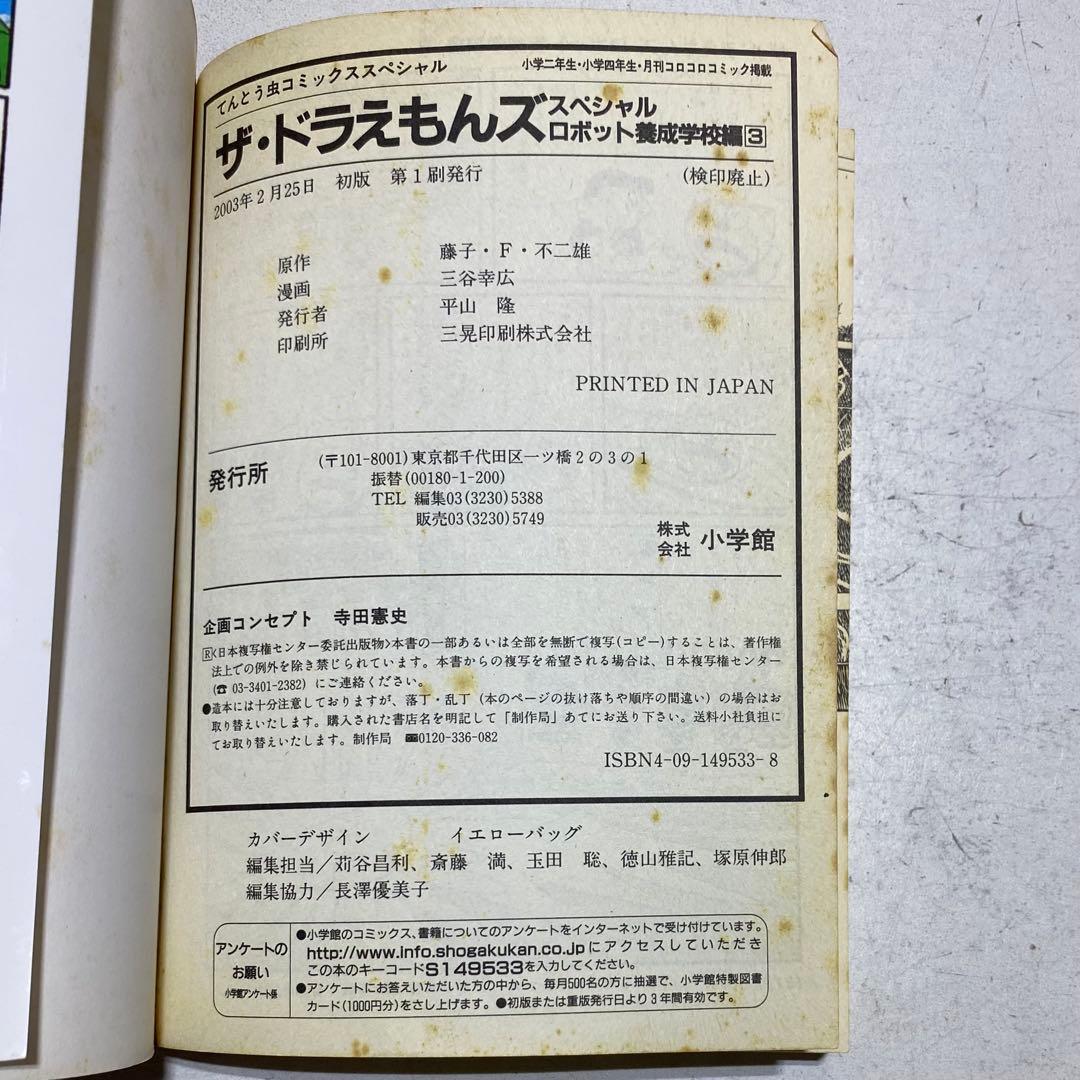 てんとう虫コミックススペシャル
小学二年生・小学四年生・月刊コロコロコミック掲載
ザ・ドラえもんズ スペシャル
ロボット養成学校編 3
2003年2月25日 初版 第1刷発行 (検印廃止)
原作 藤子・F・不二雄
漫画 三谷幸広
発行者 平山 隆
印刷所 三晃印刷株式会社
PRINTED IN JAPAN
発行所 (〒101-8001)東京都千代田区一ツ橋2の3の1
振替(00180-1-200)
TEL 編集03(3230)5388
販売03(3230)5749
株式会社 小学館
企画コンセプト 寺田憲史
R<日本複写権センター委託出版物>本書の一部あるいは全部を無断で複写(コピー)することは、著作権
法上での例外を除き禁じられています。本書からの複写を希望される場合は、日本複写権センター
(☎ 03-3401-2382) にご連絡ください。
●造本には十分注意しておりますが、落丁・乱丁 (本のページの抜け落ちや順序の間違い) の場合はお
取り替えいたします。購入された書店名を明記して「制作局」あてにお送り下さい。送料小社負担に
てお取り替えいたします。制作局 0120-336-082
ISBN4-09-149533-8
カバーデザイン イエローバッグ
編集担当/苅谷昌利、斎藤 満、玉田 聡、徳山雅記、塚原伸郎
編集協力/長澤優美子
アンケートの
お願い
小学館アンケート係
●小学館のコミックス、書籍についてのアンケートをインターネットで受け付けています。
http://www.info.shogakukan.co.jpにアクセスしていただき
この本のキーコードS149533を入力してください。
●アンケートにお答えいただいた方の中から、毎月500名の方に抽選で、小学館特製図書
カード(1000円分)をさし上げます。●初版または重版発行日より3年間有効です。